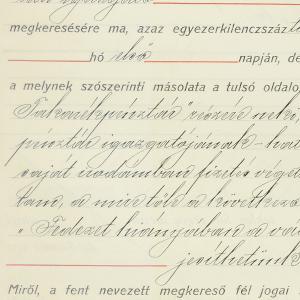 megkeresésére ma, azaz egyezerkilenczszáz
hó első napján, de
a melynek szószerinti másolata a tulsó oldalo
Takarékpénztár" részére
pénztár igazgatójának - hat
saját irodámban fizetés végett
tam, a mire tőle a következő
"Fedezet hiányában a vál
jesíthetünk
Miről, a fent nevezett megkereső fél jogai